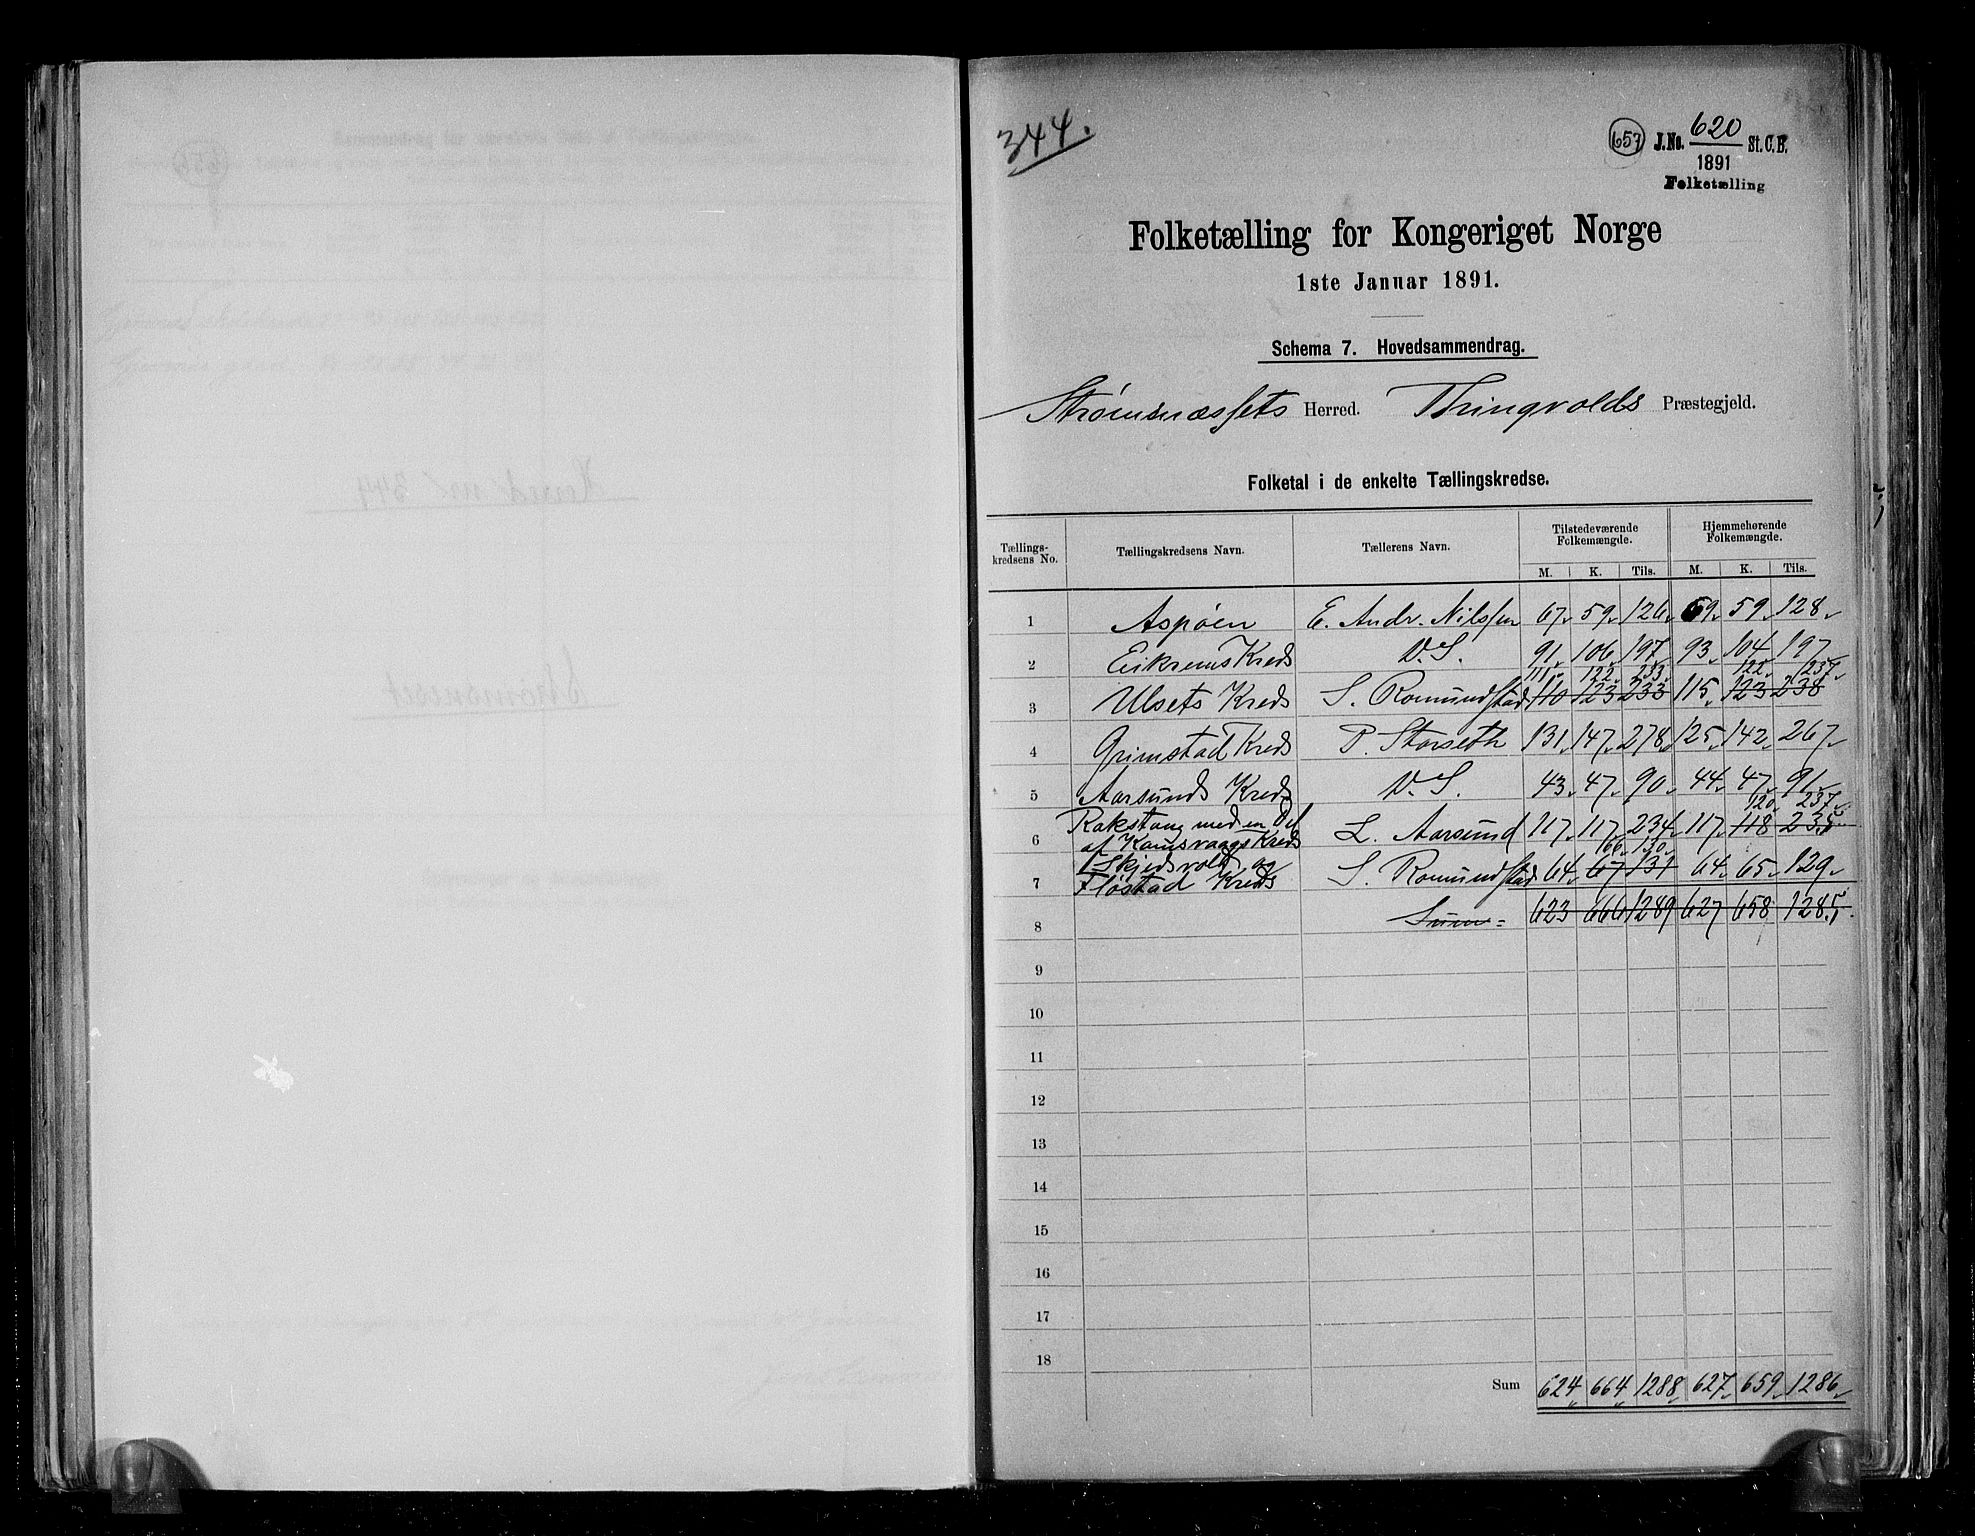 344.
657 J.No. 620 St. C. B.
1891
Folketælling
Folketælling for Kongeriget Norge
1ste Januar 1891.
Schema 7. Hovedsammendrag.
Strømsnæssets Herred. Thingvolds Præstegjeld.
Folketal i de enkelte Tællingskredse.
Tællings-kredsens No. Tællingskredsens Navn. Tællerens Navn. Tilstedeværende Folkemængde. Hjemmehørende Folkemængde.
M. K. Tils. M. K. Tils.
1 Aspøen E. Andr. Nilssen 67 59 126 69 59 128
2 Eikrems Kreds D. S. 91 106 197 93 104 197
111 122 233 122 237
3 Ulsets Kreds S. Romundstad 110 123 233 115 123 238
4 Grimstad Kreds P. Storseth 131 147 278 125 142 267
5 Aarsunds Kreds D. S. 43 47 90 44 47 91
120 237
6 Rakstang med en Del af Kamsvaags Kreds L. Aarsund 117 117 234 117 118 235
66 130
7 Skjedsvold og Flostad Kreds S. Romundstad 64 67 131 64 65 129
8 Sum = 623 666 1289 627 658 1285
9
10
11
12
13
14
15
16
17
18
Sum 624 664 1288 627 659 1286